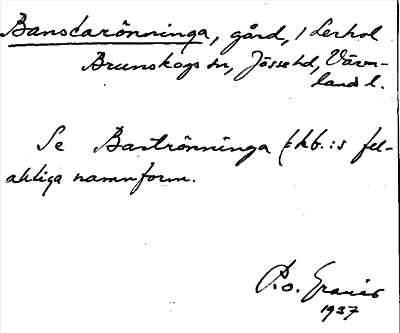 Bansdarönninga, gård, i Lerhol
Brunskogs sn, Jösse hd, Värm-
lands l.
Se Baströnninga (= kb.:s fel-
aktiga namnform.
P.o. Graner
1937